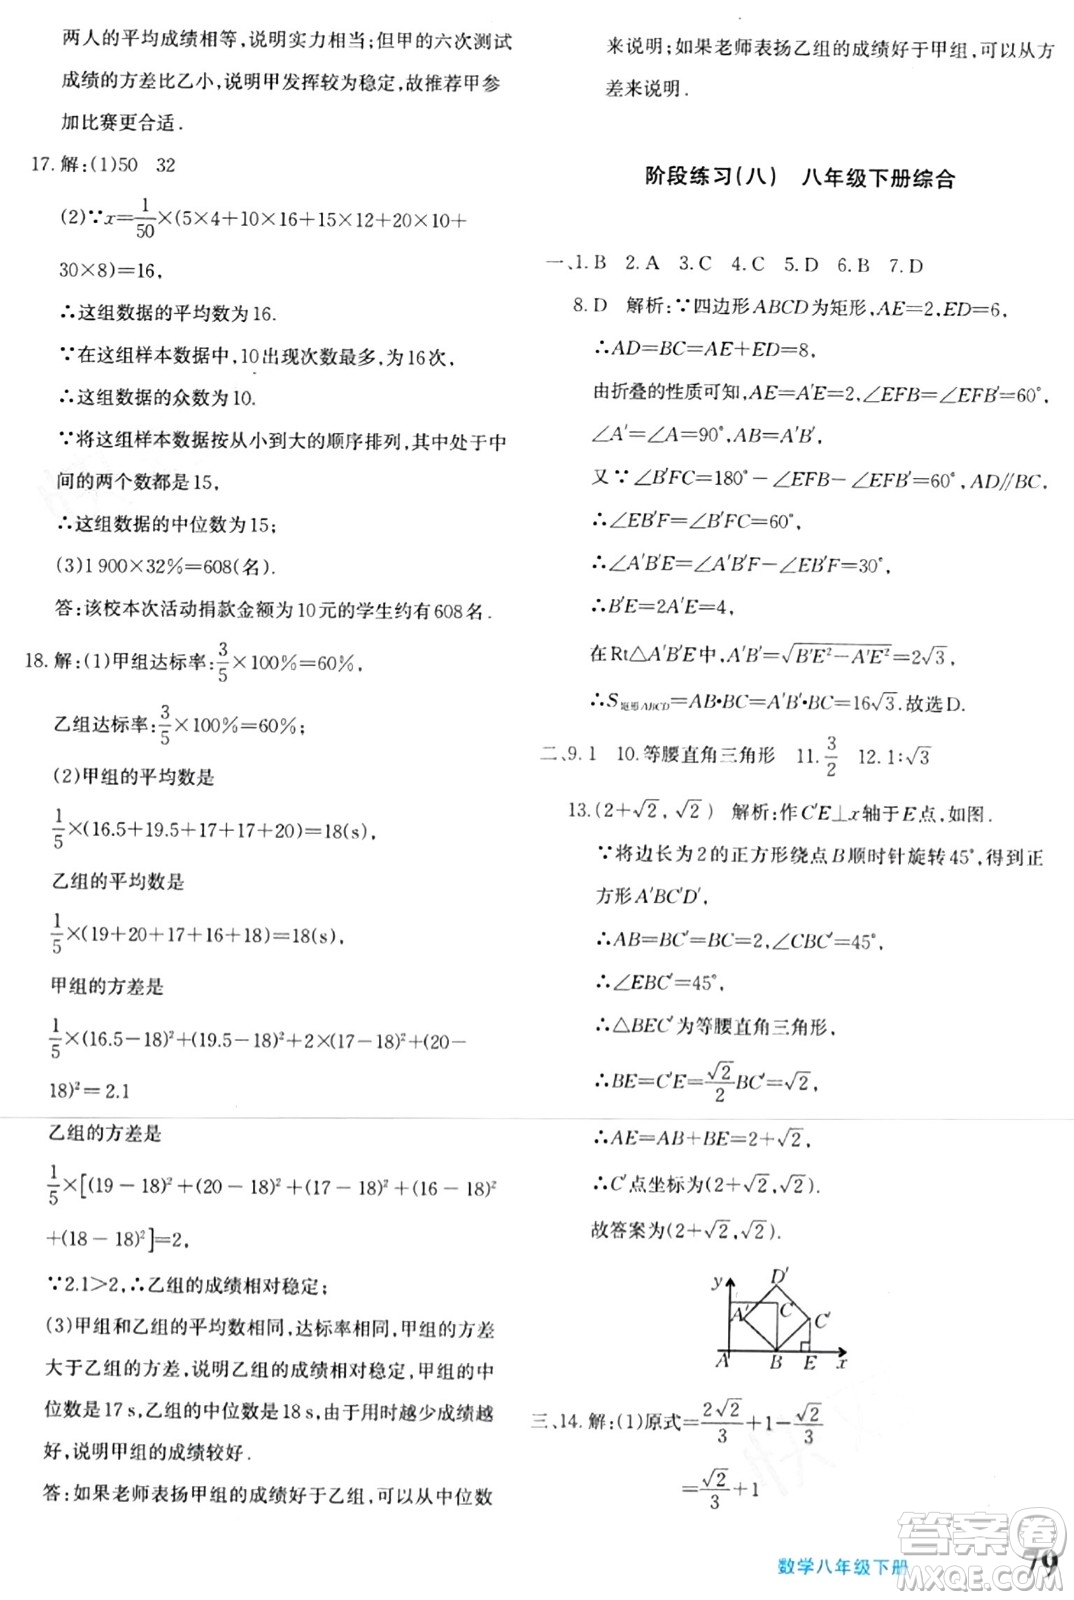 两人的平均成绩相等,说明实力相当;但甲的六次测试
成绩的方差比乙小,说明甲发挥较为稳定,故推荐甲参
加比赛更合适.
17.解:(1)50 32
(2)∵x=1/50×(5×4+10×16+15×12+20×10+
30×8)=16,
∴这组数据的平均数为16.
∵在这组样本数据中,10出现次数最多,为16次,
∴这组数据的众数为10.
∵将这组样本数据按从小到大的顺序排列,其中处于中
间的两个数都是15,
∴这组数据的中位数为15;
(3)1 900×32%=608(名).
答:该校本次活动捐款金额为10元的学生约有608名.
18.解:(1)甲组达标率:3/5×100%=60%,
乙组达标率:3/5×100%=60%;
(2)甲组的平均数是
1/5×(16.5+19.5+17+17+20)=18(s),
乙组的平均数是
1/5×(19+20+17+16+18)=18(s),
甲组的方差是
1/5×(16.5-18)²+(19.5-18)²+2×(17-18)²+(20-
18)²=2.1
乙组的方差是
1/5×[(19-18)²+(20-18)²+(17-18)²+(16-18)²
+(18-18)²]=2,
∵2.1>2,∴乙组的成绩相对稳定;
(3)甲组和乙组的平均数相同,达标率相同,甲组的方差
大于乙组的方差,说明乙组的成绩相对稳定,甲组的中
位数为17 s,乙组的中位数是18 s,由于用时越少成绩越
好,说明甲组的成绩较好.
答:如果老师表扬甲组的成绩好于乙组,可以从中位数
来说明;如果老师表扬乙组的成绩好于甲组,可以从方
差来说明.
阶段练习(八) 八年级下册综合
一、1.B 2.A 3.C 4.C 5.D 6.B 7.D
8.D 解析:∵四边形ABCD为矩形,AE=2,ED=6,
∴AD=BC=AE+ED=8,
由折叠的性质可知,AE=A′E=2,∠EFB=∠EFB′=60°,
∠A′=∠A=90°,AB=A′B′,
又∵∠B′FC=180°-∠EFB-∠EFB′=60°,AD∥BC,
∴∠EB′F=∠B′FC=60°,
∴∠A′B′E=∠A′B′F-∠EB′F=30°,
∴B′E=2A′E=4,
在Rt△A′B′E中,A′B′=√(B′E²-A′E²)=2√3,
∴S矩形ABCD=AB•BC=A′B′•BC=16√3.故选D.
二、9.1 10.等腰直角三角形 11.3/2 12.1:√3
13.(2+√2,√2) 解析:作C′E⊥x轴于E点,如图.
∵将边长为2的正方形绕点B顺时针旋转45°,得到正
方形A′BC′D′,
∴AB=BC′=BC=2,∠CBC′=45°,
∴∠EBC′=45°,
∴△BEC′为等腰直角三角形,
∴BE=C′E=√2/2BC′=√2,
∴AE=AB+BE=2+√2,
∴C′点坐标为(2+√2,√2).
故答案为(2+√2,√2).
y D′
A′ C C′
A B E x
三、14.解:(1)原式=2√2/3+1-√2/3
=√2/3+1
数学八年级下册 79
答案圈
MXQE.COM